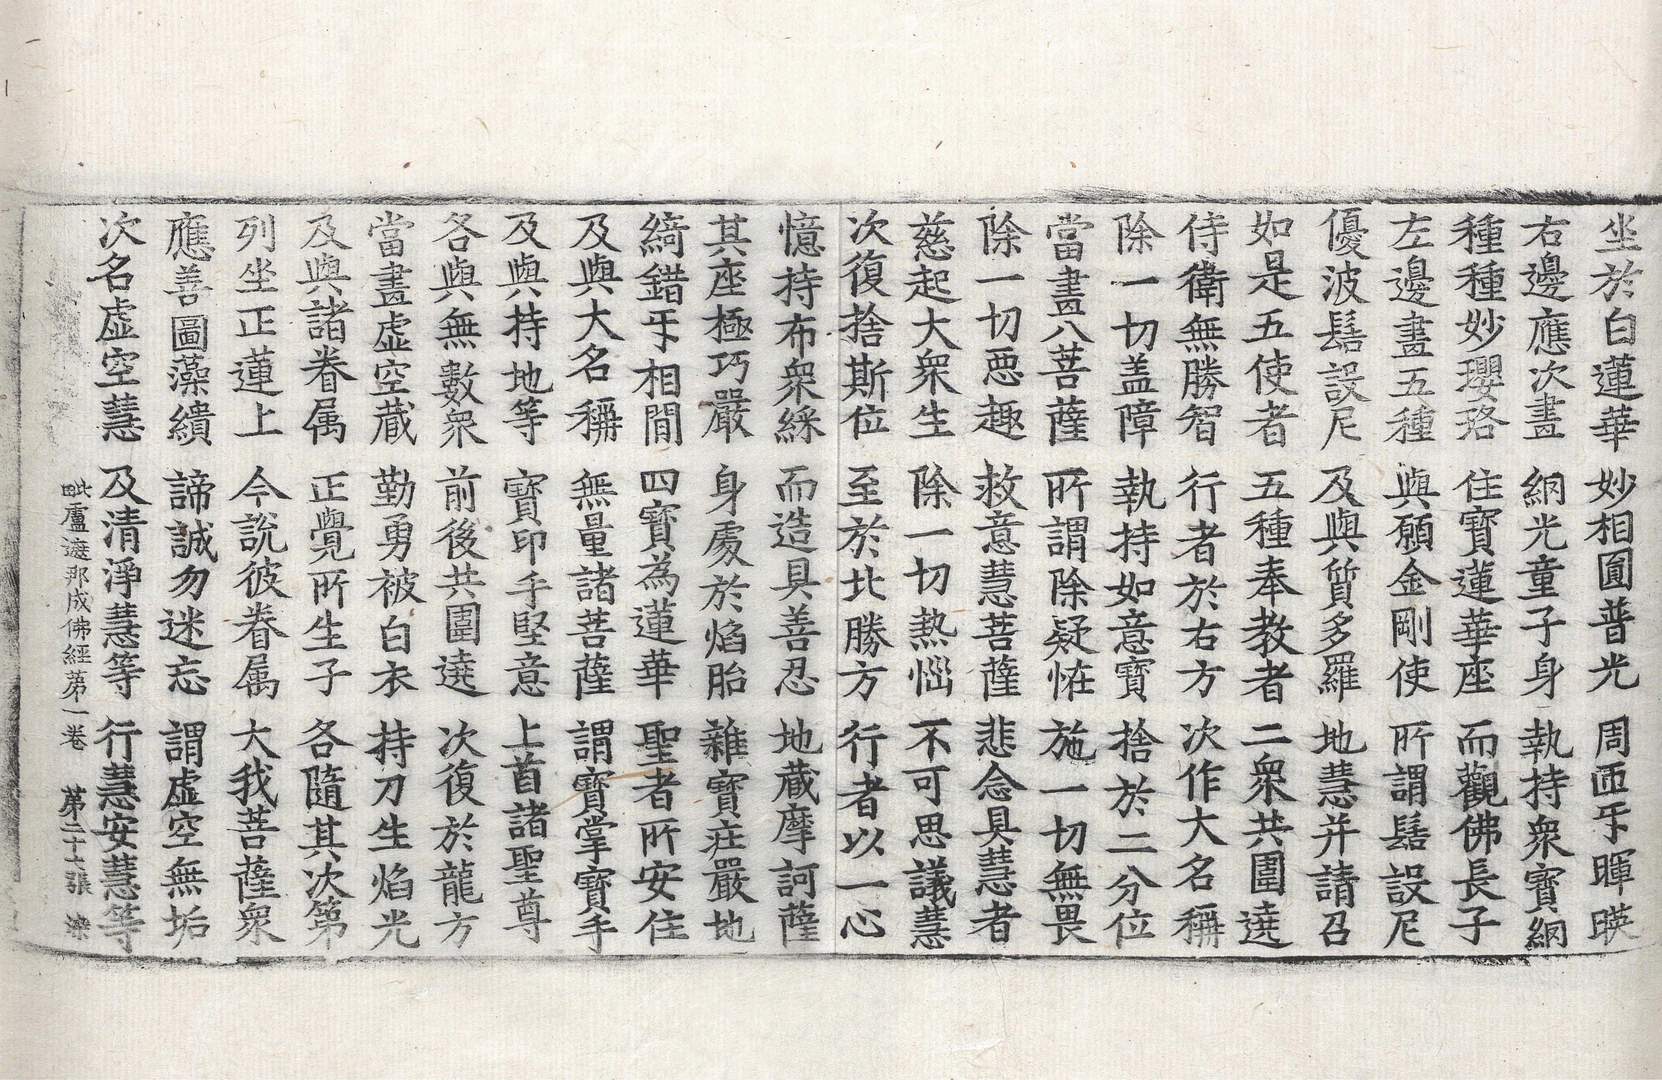 坐於白蓮華 妙相圓普光 周匝𭀠暉暎
右邊應次畫 網光童子身 執持眾寶網
種種妙瓔珞 住寶蓮華座 而觀佛長子
左邊畫五種 與願金剛使 所謂髻設尼
優波髻設尼 及與質多羅 地慧并請召
如是五使者 五種奉教者 二眾共圍遶
侍衛無勝智 行者於右方 次作大名稱
除一切盖障 執持如意寶 捨於二分位
當畫八菩薩 所謂除疑恠 施一切無畏
除一切惡趣 救意慧菩薩 悲念具慧者
慈起大眾生 除一切熱惱 不可思議慧
次復捨斯位 至於北勝方 行者以一心
憶持布眾綵 而造具善忍 地蔵摩訶薩
其座極巧嚴 身處於焰胎 雜寶莊嚴地
綺錯𭀠相間 四寶為蓮華 聖者所安住
及與大名稱 無量諸菩薩 謂寶掌寶手
及與持地等 寶印手堅意 上首諸聖尊
各與無數眾 前後共圍遶 次復於龍方
當畫虛空蔵 勤勇被白衣 持刀生焰光
及與諸眷属 正覺所生子 各隨其次第
列坐正蓮上 今說彼眷属 大我菩薩眾
應善圖藻繢 諦誠勿迷忘 謂虛空無垢
次名虛空慧 及清淨慧等 行慧安慧等
毗盧遮那成佛經苐一卷 苐二十六張 染